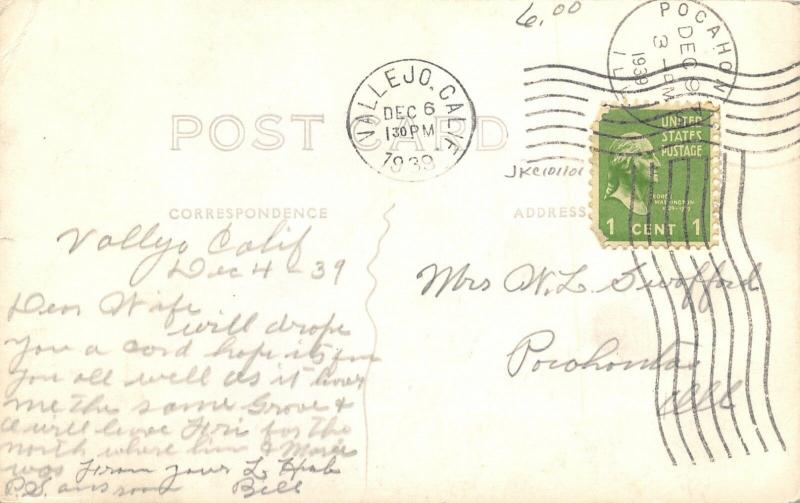 6.00
POCAHON
DEC 9
3-PM
1939
ILL
VALLEJO, CALIF.
DEC 6
1 30 PM
1939
POST CARD
UNITED
STATES
POSTAGE
GEORGE
WASHINGTON
1 CENT 1
JKC101101
CORRESPONDENCE
ADDRESS
Vallyo Calif
Dec 4 - 39
Dear Wife
will drope
you a card hope it
you all well as it leaves
me the same Grove &
will leave Fri for the
north where him & Marie
was From your L Hub
P.S. ans soon Bill
Mrs W. L. Swofford
Pocohontas
Ill